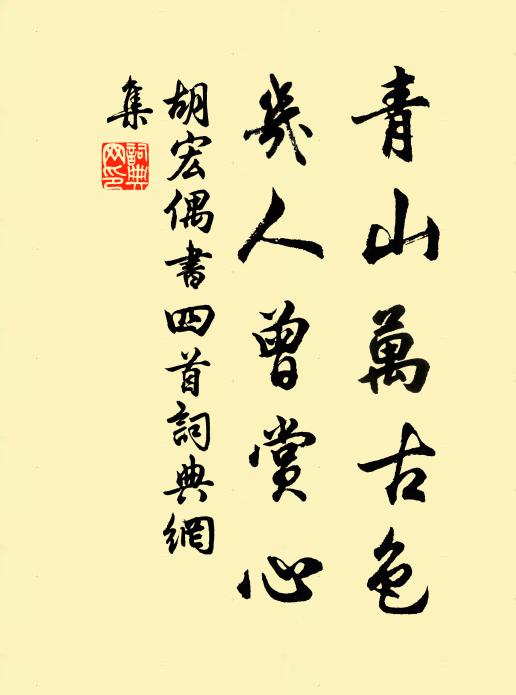 青山萬古色
幾人曾賞心
胡宏偶書四首詞典網
集
詞典
网印